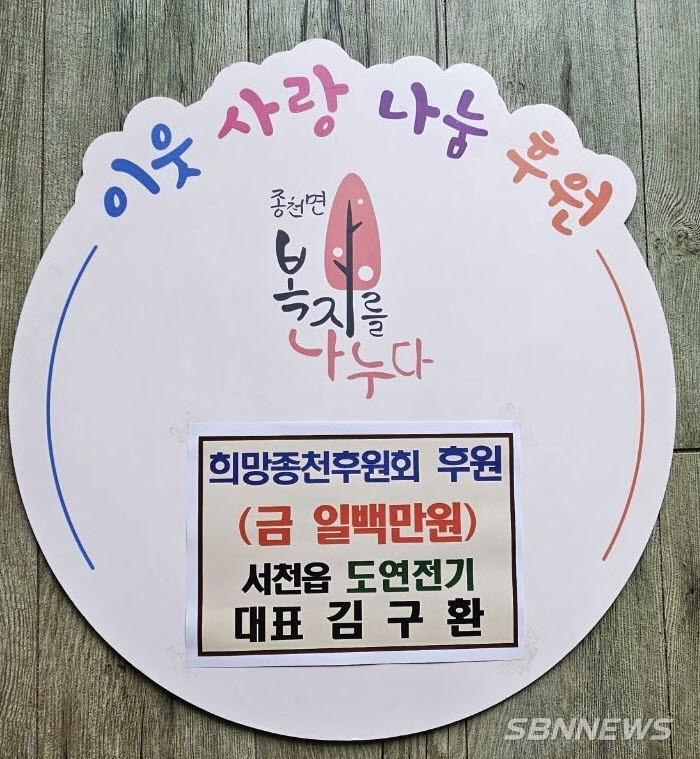 이웃 사랑 나눔 후원
종천면
복지를
나누다
희망종천후원회 후원
(금 일백만원)
서천읍 도연전기
대표 김구환
SBNNEWS